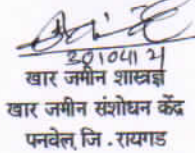 खार जमीन शास्त्रज्ञ
खार जमीन संशोधन केंद्र
पनवेल, जि . रायगड